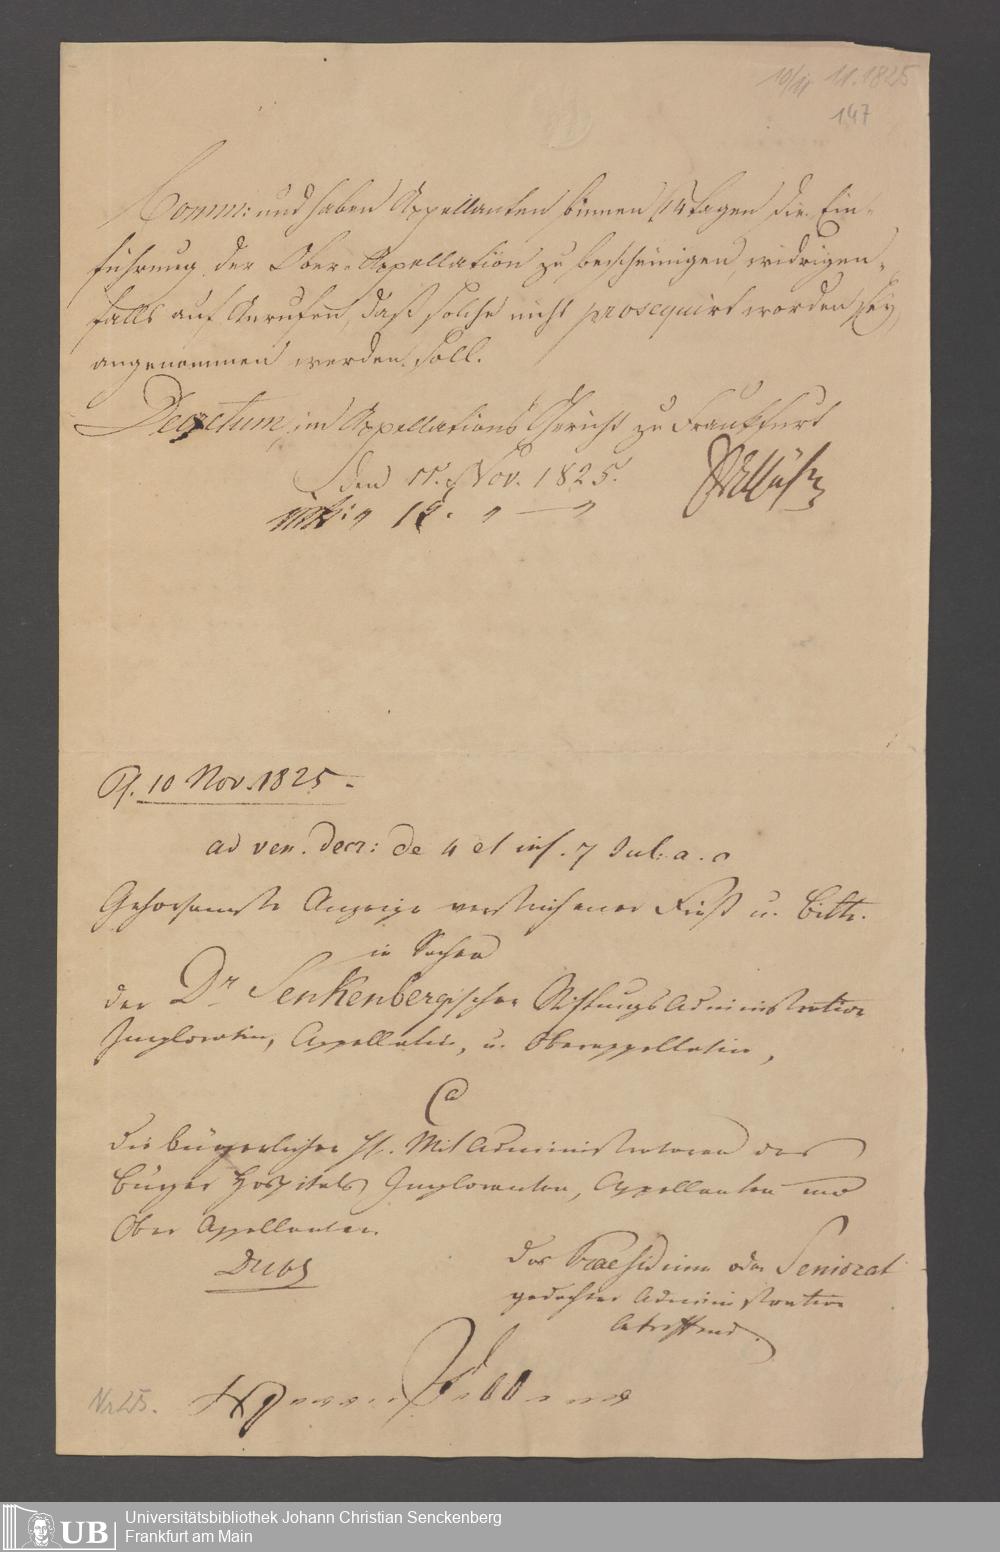 10/11 11.1825
147
Comm: und haben Appellanten binnen 14 Tagen die Ein-
führung der Ober-Appellation zu bescheinigen, widrigen-
falls auf Anrufen, daß solche nicht prosequirt worden sey
angenommen werden soll.
Decretum im Appellations Gericht zu Frankfurt
den 11. Nov. 1825.
" 12. " — "
Ps. 10 Nov. 1825.
ad ven. decr: de 4 et ins. 7 Jul. a. c
Gehorsamste Anzeige verstrichener Frist u. Bitte.
in Sachen
der Dr Senkenbergischen Stiftungs Administration
Imploratin, Appellatin, u. Oberappellatin,
Ca
die bürgerlichen H. Mit Administratoren des
Bürger Hospitals Imploranten, Appellanten und
Ober Appellanten.
Dubs
das Praesidium oder Seniorat
gedachter Administration
betreffend.
Nr 25.
UB
Universitätsbibliothek Johann Christian Senckenberg
Frankfurt am Main